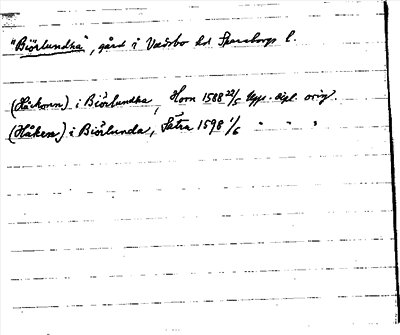 "Biörlundha", gård i Vadsbo hd Skaraborgs l.
(Håkonn) i Biörlundha, Horn 1588 22/5 Upps. dipl. orig.
(Håken) i Biörlunda, Sätra 1598 1/6 " " "